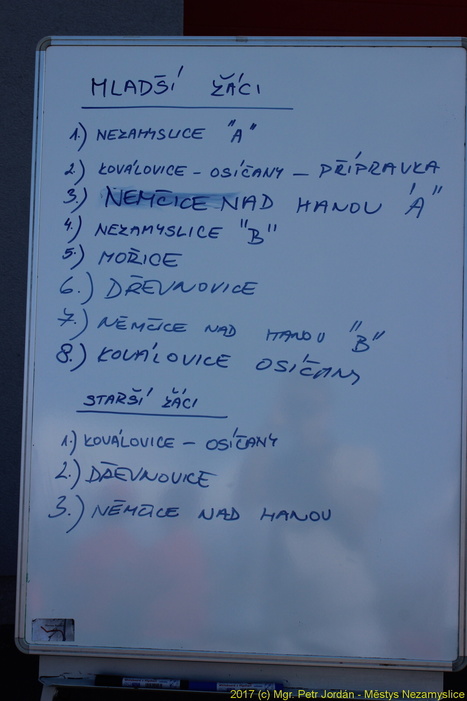 MLADŠÍ ŽÁCI
1.) NEZAMYSLICE "A"
2.) KOVÁLOVICE - OSÍČANY - PŘÍPRAVKA
3.) NĚMČICE NAD HANOU "A"
4.) NEZAMYSLICE "B"
5.) MOŘICE
6.) DŘEVNOVICE
7.) NĚMČICE NAD HANOU "B"
8.) KOVÁLOVICE OSÍČANY
STARŠÍ ŽÁCI
1.) KOVÁLOVICE - OSÍČANY
2.) DŘEVNOVICE
3.) NĚMČICE NAD HANOU
2017 (c) Mgr. Petr Jordán - Městys Nezamyslice